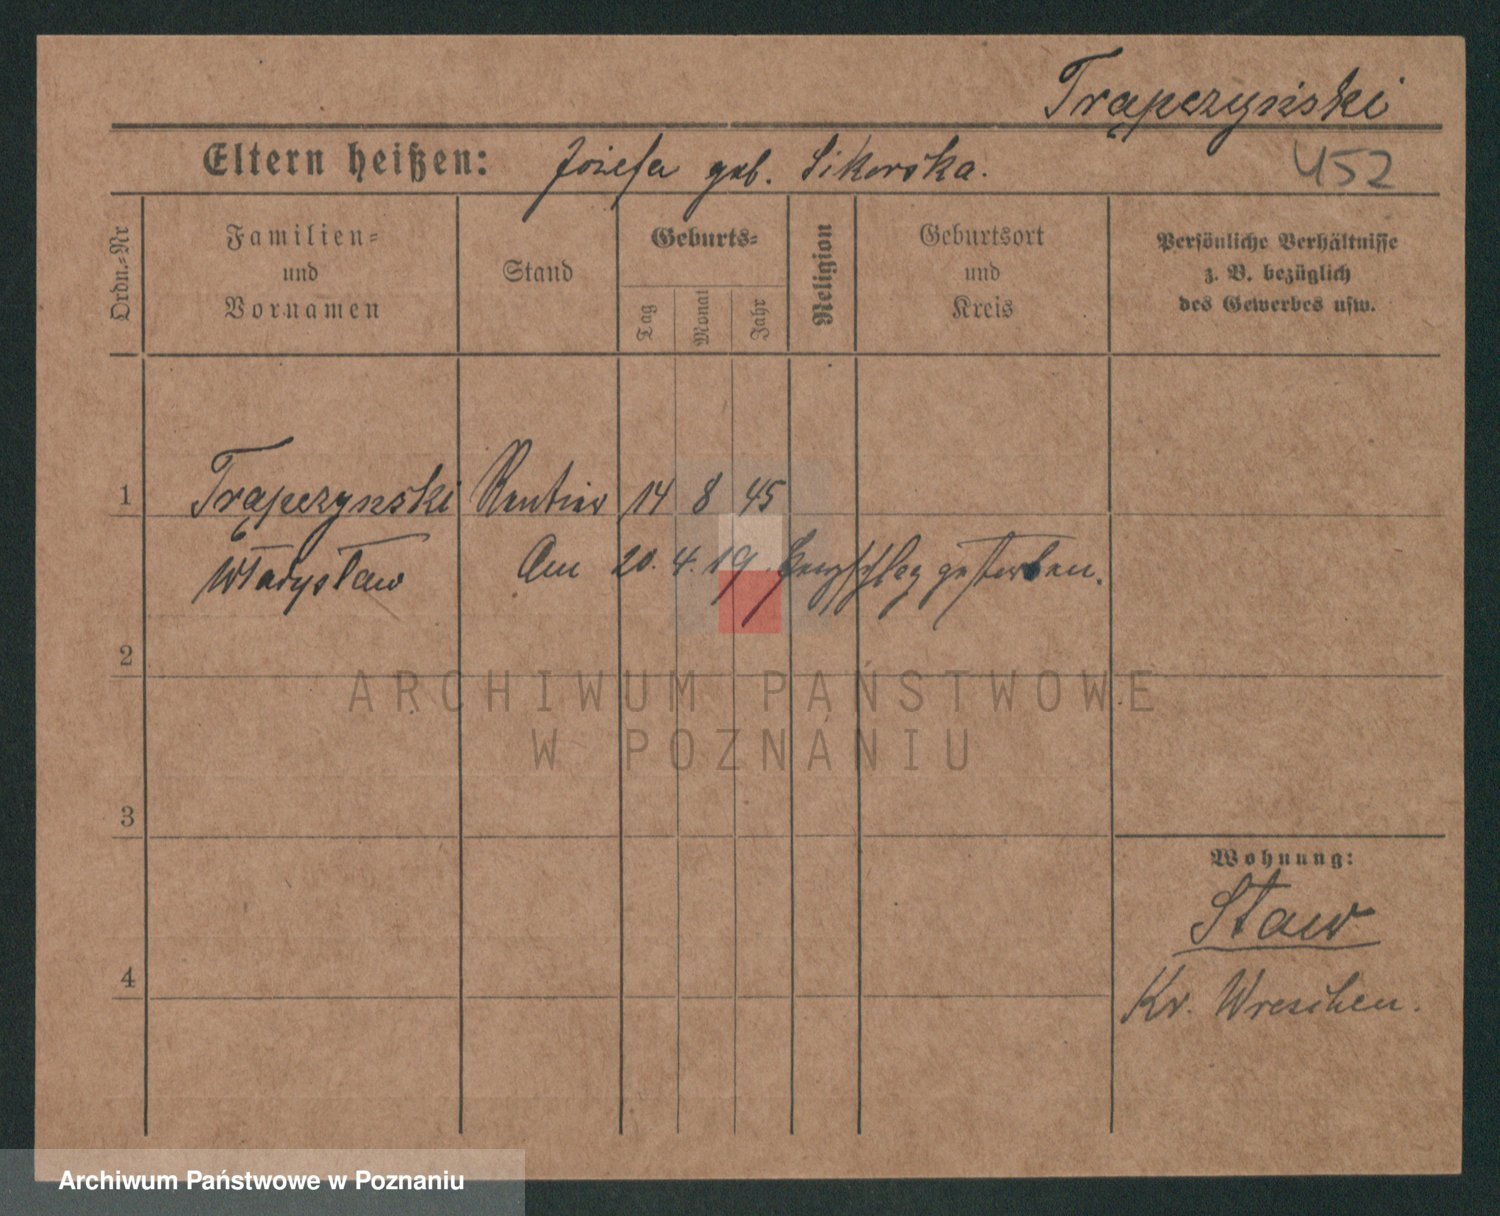 Trąpczyński
Eltern heißen: Józefa geb. Sikorska.
452
Ordn.-Nr
Familien-
und
Vornamen
Stand
Geburts-
Tag
Monat
Jahr
Religion
Geburtsort
und
Kreis
Persönliche Verhältnisse
z. B. bezüglich
des Gewerbes usw.
1 Trąpczyński Rentier 14 8 45
Władysław Am 20. 4. 19 gestorben.
2
3
4
Wohnung:
Staw
Kr. Wreschen.
ARCHIWUM PAŃSTWOWE
W POZNANIU
Archiwum Państwowe w Poznaniu